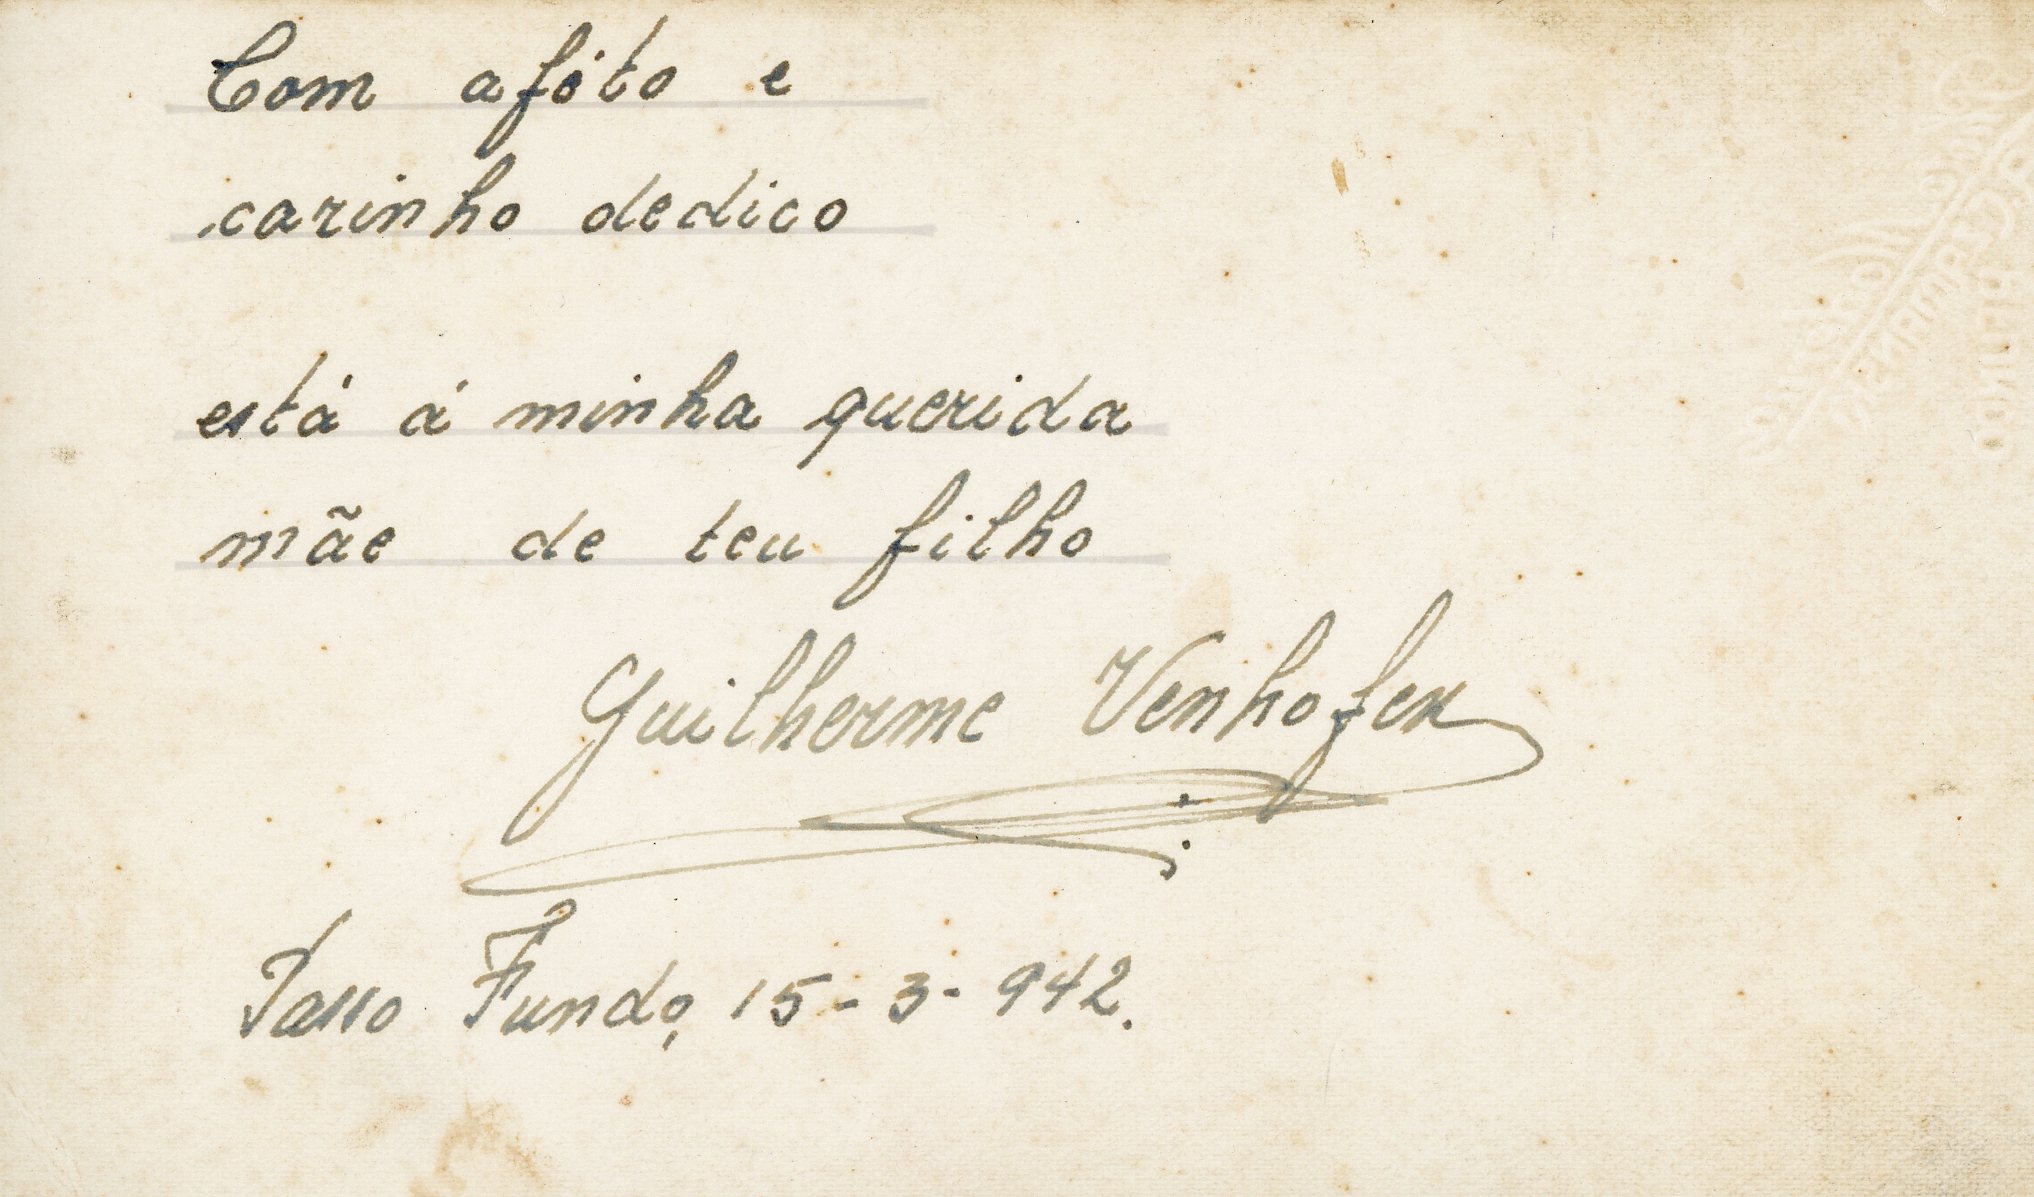 Com afóto e
carinho dedico
está á minha querida
mãe de teu filho
Guilherme Venhofen
Passo Fundo, 15-3-942.